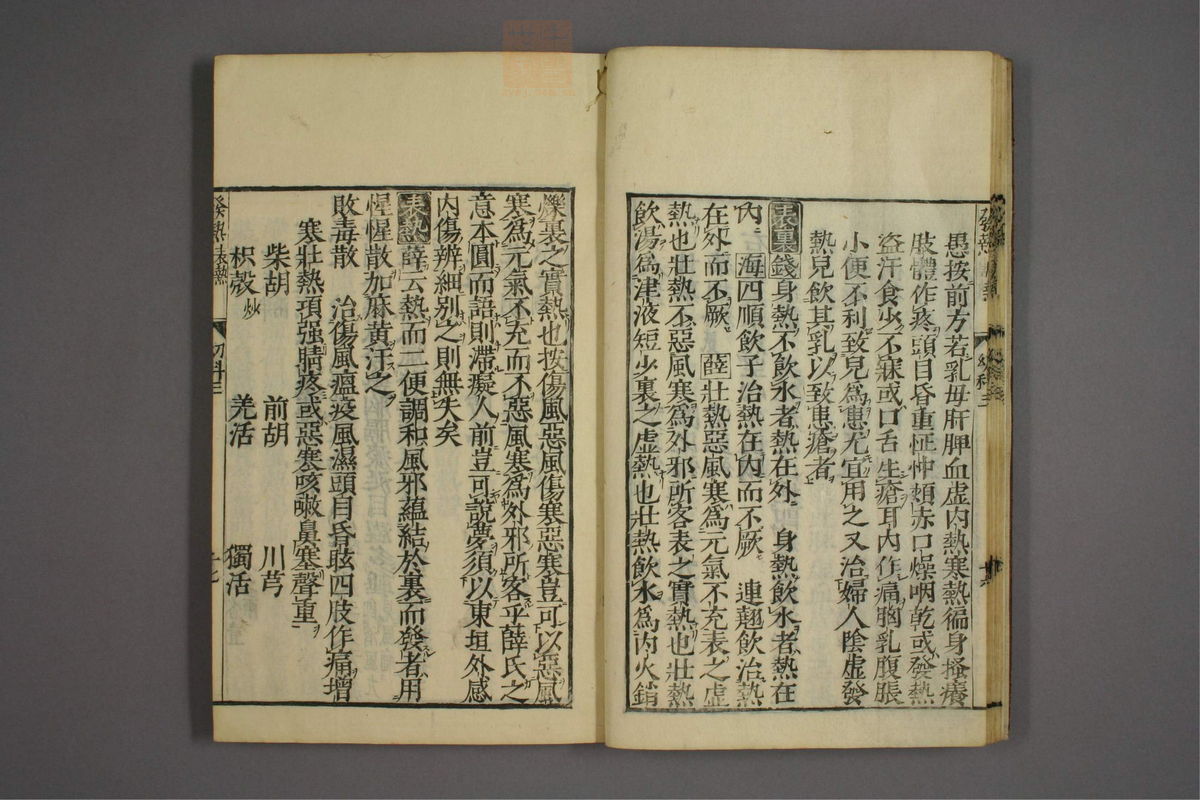 愚按前方若乳母肝脾血虛内熱寒熱徧身搔癢
肢體作疼頭目昏重怔忡頰赤口燥咽乾或發熱
盗汗食少不寐或口舌生瘡耳内作痛胸乳腹脹
小便不利致兒爲患尤宜用之又治婦人陰虛發
熱兒飲其乳以致患瘡者
表裏 錢 身熱不飲水者熱在外 身熱飲水者熱在
内 海 四順飲子治熱在内而不厥 連翹飲治熱
在外而不厥 薛 壯熱惡風寒爲元氣不充表之虛
熱也壯熱不惡風寒爲外邪所客表之實熱也壯熱
飲湯爲津液短少裏之虛熱也壯熱飲水爲内火銷
爍裏之實熱也按傷風惡風傷寒惡寒豈可以惡風
寒爲元氣不充而不惡風寒爲外邪所客乎薛氏之
意本圓而語則滯癡人前豈可說夢須以東垣外感
内傷辨細別之則無失矣
表熱 薛云熱而二便調和風邪蘊結於裏而發者用
惺惺散加麻黄汗之
敗毒散 治傷風瘟疫風濕頭目昏眩四肢作痛增
寒壯熱項强腈疼或惡寒咳嗽鼻塞聲重
柴胡 前胡 川芎
枳殼炒 羌活 獨活
發熱 表熱
幼科三